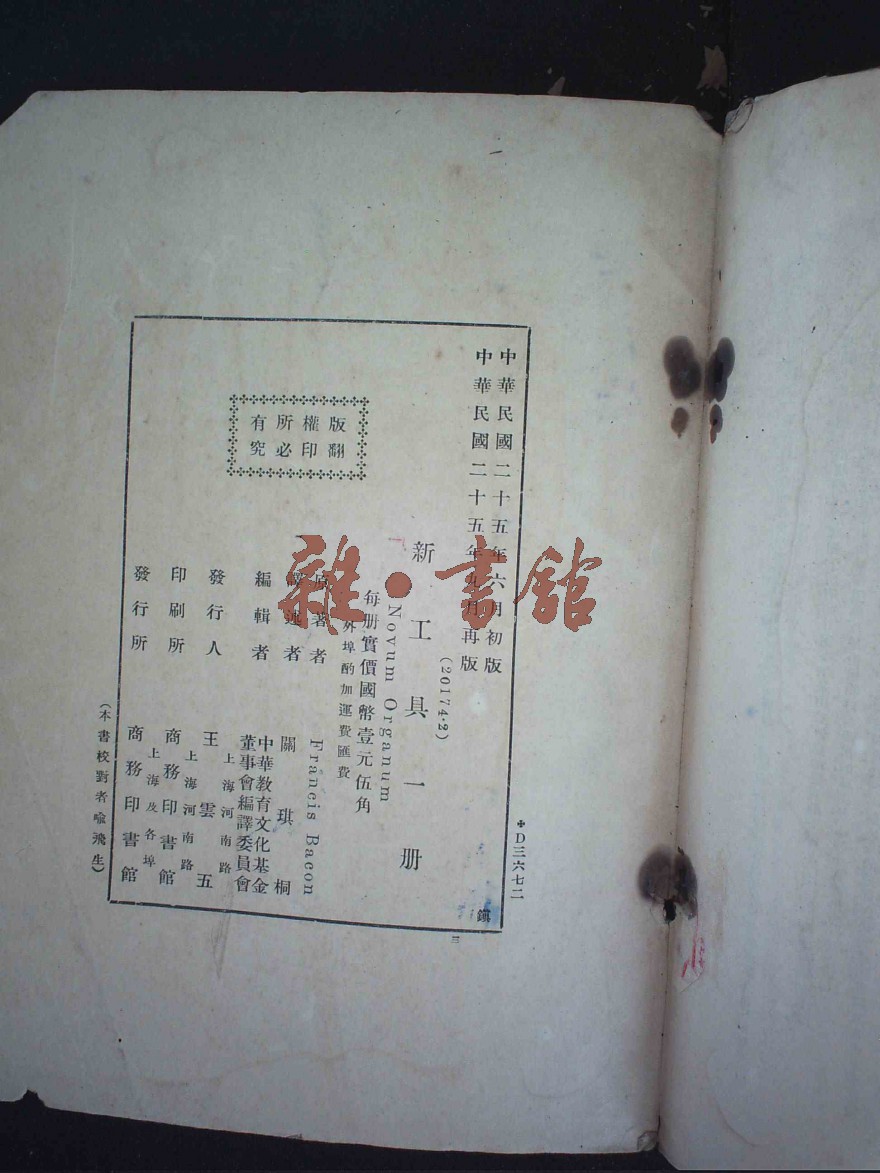 中華民國二十五年六月初版
中華民國二十五年九月再版
(20174·2)
新工具一册
Novum Organum
每册實價國幣壹元伍角
外埠酌加運費匯費
原著者 Francis Bacon
譯述者 關琪桐
編輯者 中華教育文化基金
董事會編譯委員會
發行人 王雲五
上海河南路
印刷所 商務印書館
上海河南路
發行所 商務印書館
上海及各埠
版權所有
翻印必究
(本書校對者喩飛生)
✦D三六七二
鎮
三
雜·書館